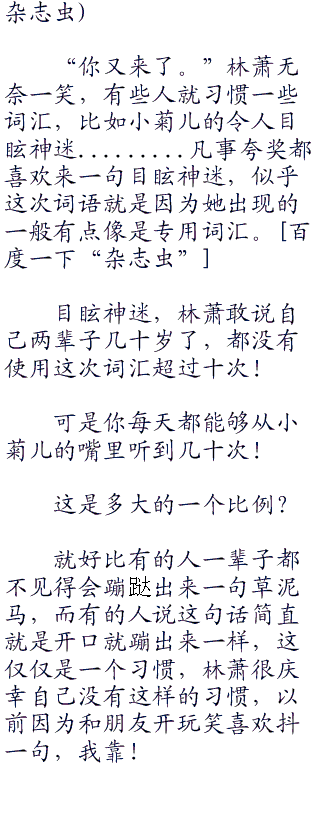 杂志虫)
“你又来了。”林萧无
奈一笑，有些人就习惯一些
词汇，比如小菊儿的令人目
眩神迷.........凡事夸奖都
喜欢来一句目眩神迷，似乎
这次词语就是因为她出现的
一般有点像是专用词汇。[百
度一下“杂志虫”]
目眩神迷，林萧敢说自
己两辈子几十岁了，都没有
使用这次词汇超过十次！
可是你每天都能够从小
菊儿的嘴里听到几十次！
这是多大的一个比例？
就好比有的人一辈子都
不见得会蹦跶出来一句草泥
马，而有的人说这句话简直
就是开口就蹦出来一样，这
仅仅是一个习惯，林萧很庆
幸自己没有这样的习惯，以
前因为和朋友开玩笑喜欢抖
一句，我靠！